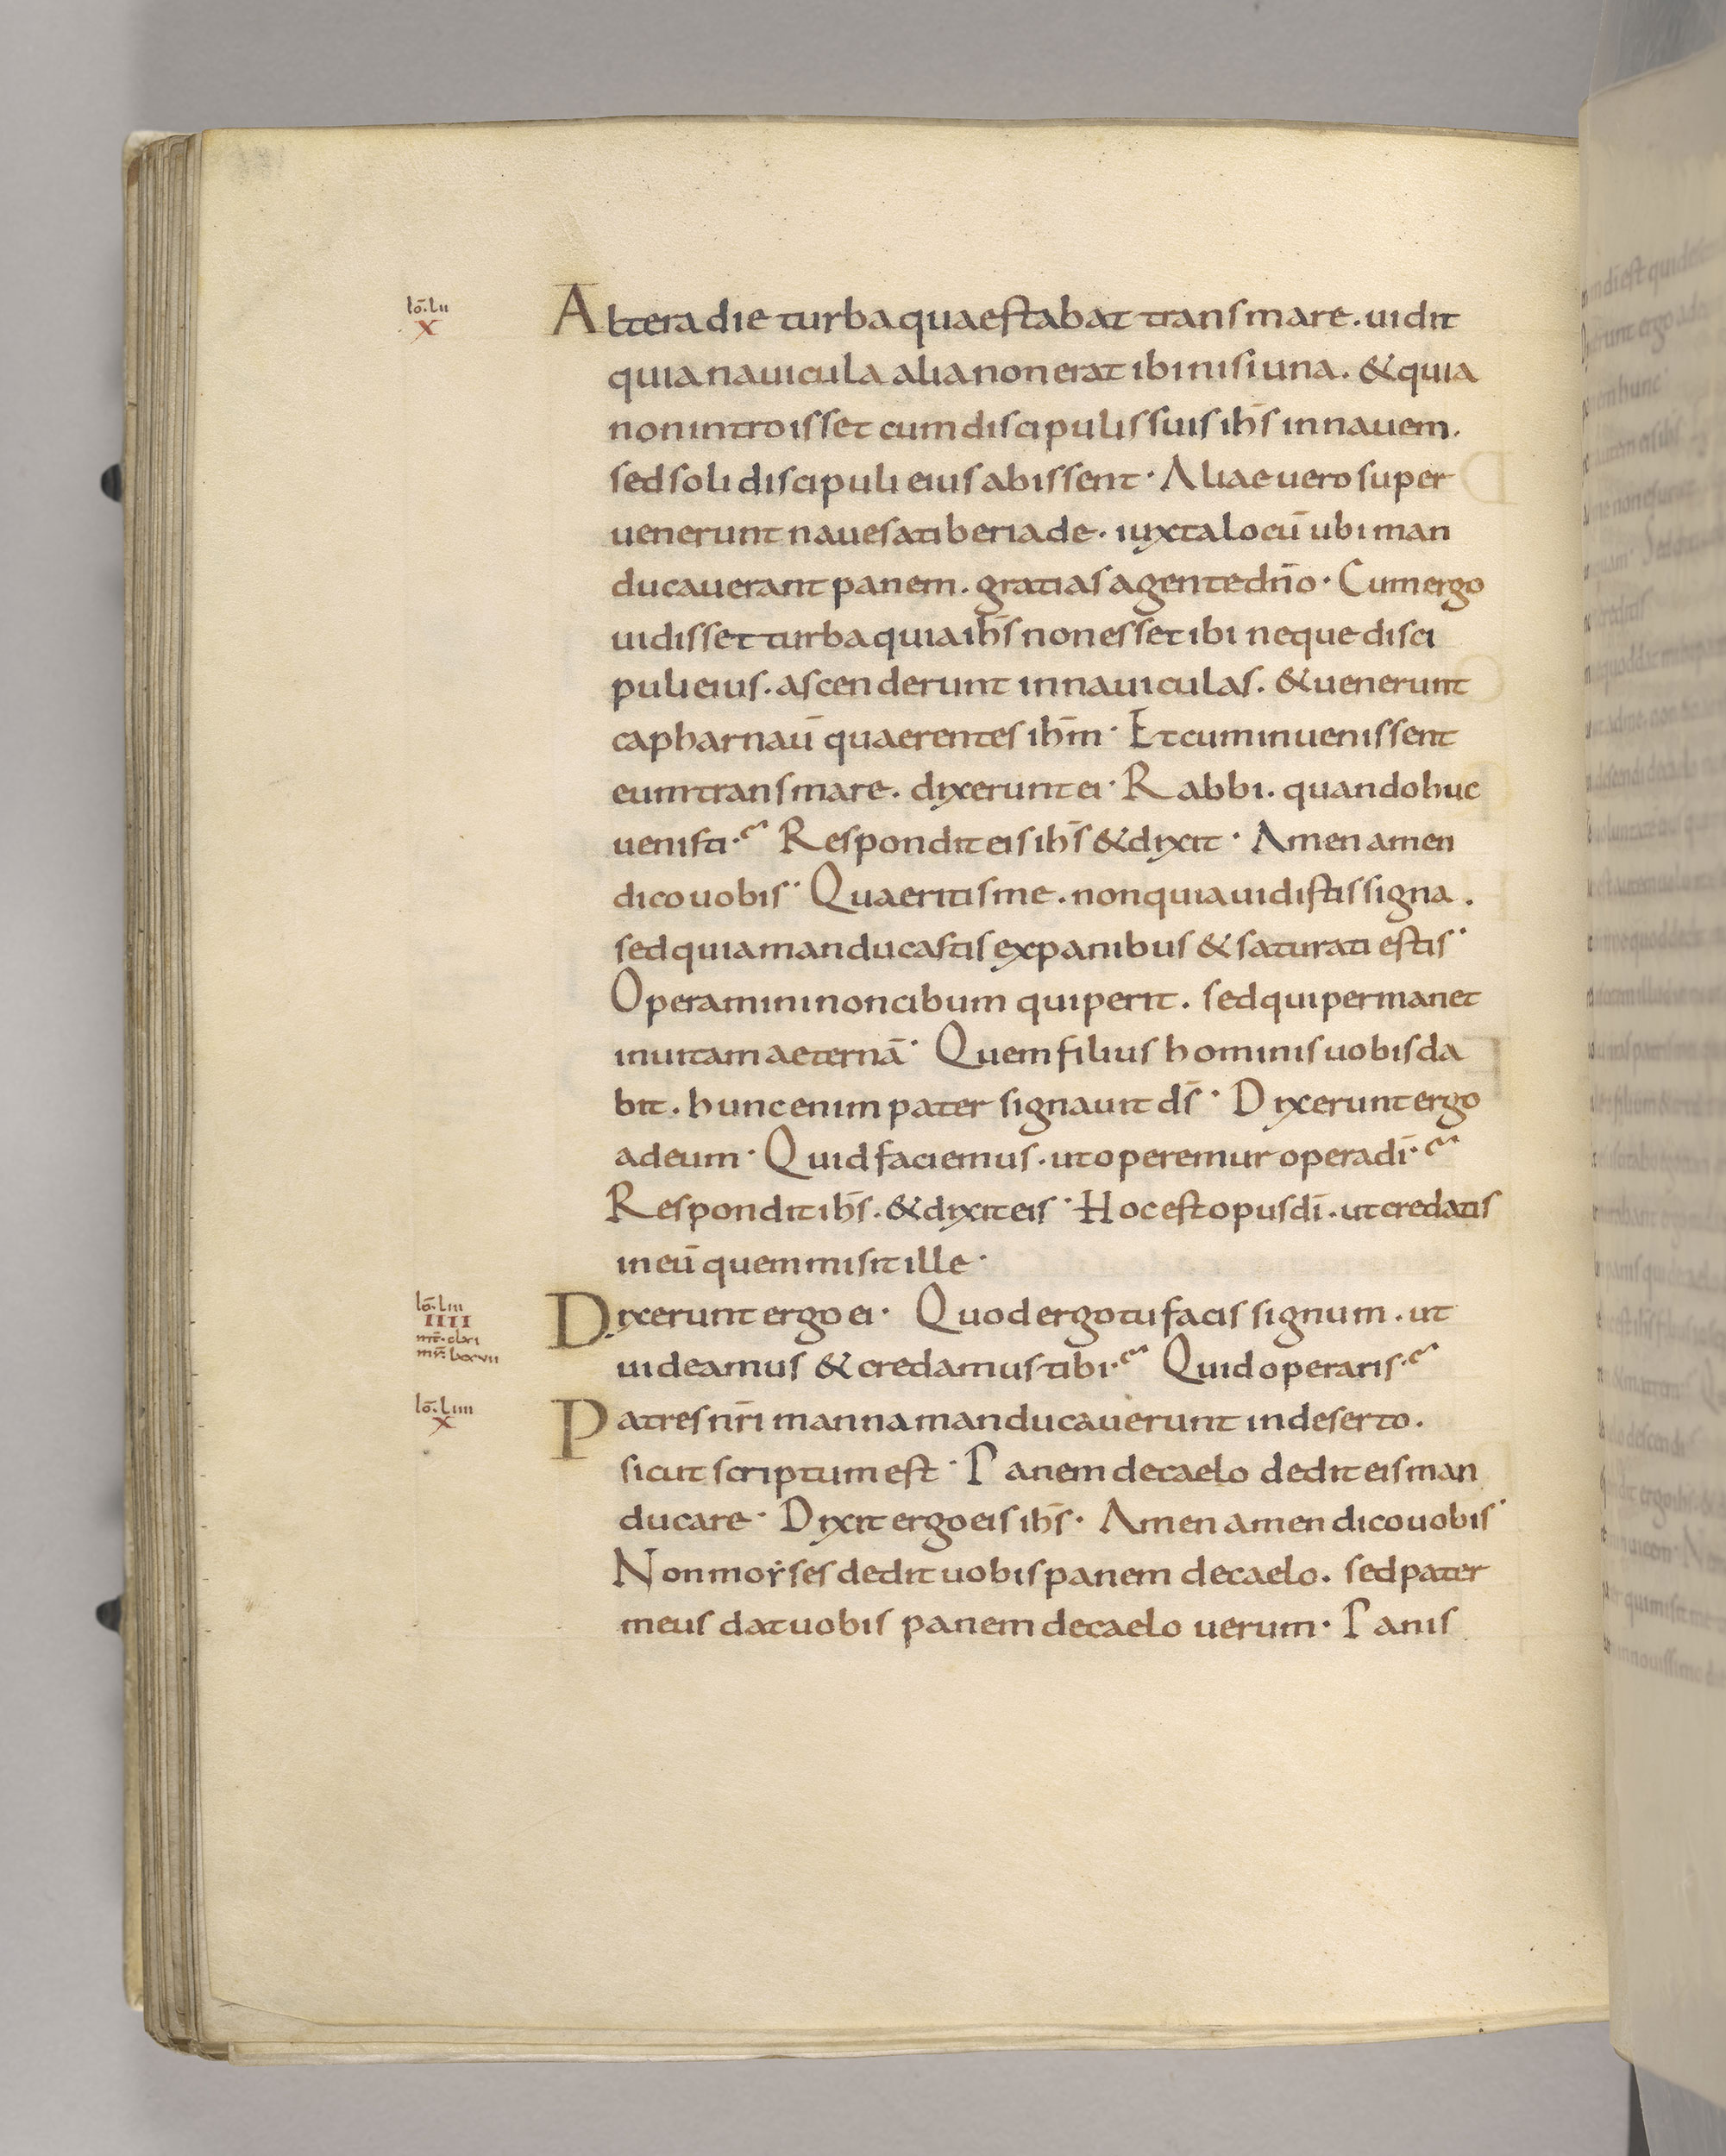 lō. Lii
X
Altera die turba quae stabat trans mare. uidit
quia nauicula alia non erat ibi nisi una. & quia
non introisset cum discipulis suis ih̄s in nauem.
sed soli discipuli eius abissent· Aliae uero super
uenerunt naues a tiberiade· iuxta locū ubi man
ducauerant panem. gratias agente dn̄o· Cum ergo
uidisset turba quia ih̄s non esset ibi neque disci
puli eius. ascenderunt in nauiculas. & uenerunt
capharnaū quaerentes ih̄m· Et cum inuenissent
eum trans mare. dixerunt ei· Rabbi. quando huc
uenisti? Respondit eis ih̄s & dixit· Amen amen
dico uobis· Quaeritis me. non quia uidistis signa.
sed quia manducastis ex panibus & saturati estis·
Operamini non cibum qui perit. sed qui permanet
in uitam aeternā· Quem filius hominis uobis da
bit. hunc enim pater signauit d̄s· Dixerunt ergo
ad eum· Quid faciemus. ut operemur opera dī?
Respondit ih̄s. & dixit eis· Hoc est opus dī. ut credatis
in eū quem misit ille·
lō. Liii
IIII
mt̄. clxi
mr̄. lxxvii
Dixerunt ergo ei· Quod ergo tu facis signum. ut
uideamus & credamus tibi? Quid operaris?
lō. Liiii
X
Patres nr̄i manna manducauerunt in deserto.
sicut scriptum est· Panem de caelo dedit eis man
ducare· Dixit ergo eis ih̄s· Amen amen dico uobis·
Non moẏses dedit uobis panem de caelo. sed pater
meus dat uobis panem de caelo uerum· Panis